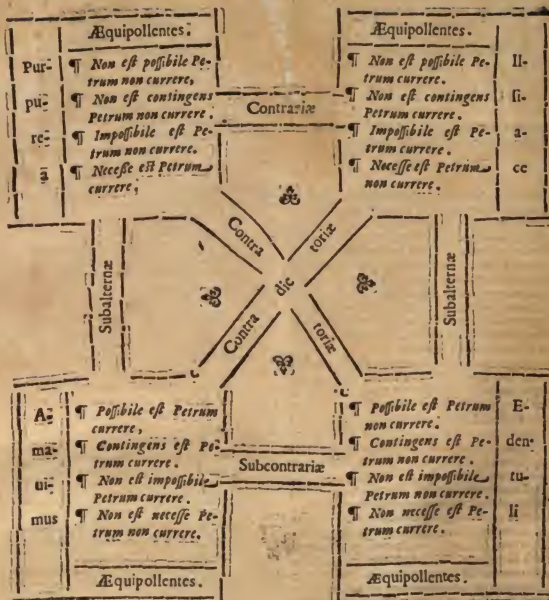 Æquipollentes.
Pur-
pu-
re-
ā
¶ Non eſt poſſibile Pe-
trum non currere,
¶ Non eſt contingens
Petrum non currere.
¶ Impoſſibile eſt Pe-
trum non currere.
¶ Neceſſe eſt Petrum
currere,
Contrariæ
Æquipollentes.
¶ Non eſt poſſibile Pe-
trum currere.
¶ Non eſt contingens
Petrum currere.
¶ Impoſſibile eſt Pe-
trum currere.
¶ Neceſſe eſt Petrum
non currere.
Il-
li-
a-
ce
Subalternæ
Contra
dic
toriæ
Contra
toriæ
Subalternæ
A-
ma-
ui-
mus
¶ Poſſibile eſt Petrum
currere,
¶ Contingens eſt Pe-
trum currere.
¶ Non eſt impoſſibile
Petrum currere.
¶ Non eſt neceſſe Pe-
trum non currere.
Æquipollentes.
Subcontrariæ
¶ Poſſibile eſt Petrum
non currere.
¶ Contingens eſt Pe-
trum non currere.
¶ Non eſt impoſſibile
Petrum non currere.
¶ Non neceſſe eſt Pe-
trum currere.
E-
den-
tu-
li
Æquipollentes.